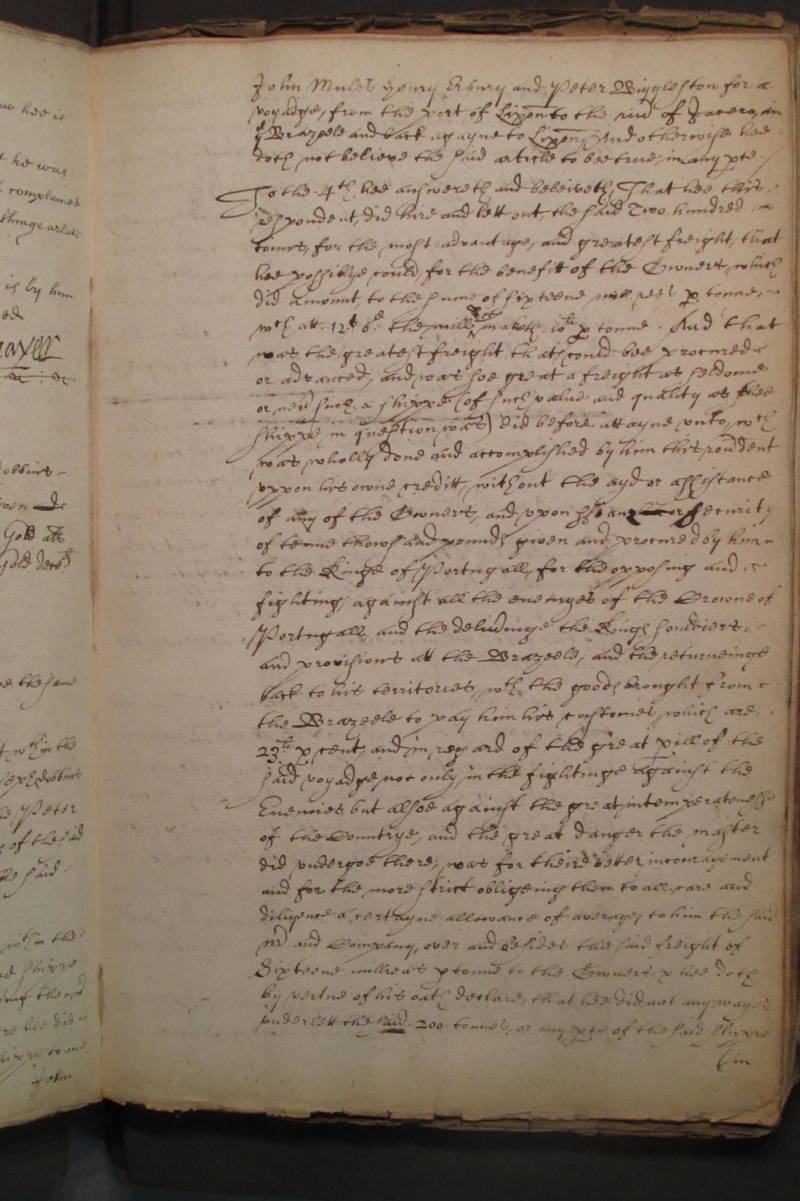 hee is
he was
complained
is by him
Peter
of the said
the said
wth in the
the shippe
hee did
John
John Mules Henry Ebury and Peter Wiggleston for a
voyadge, from the port of Lixon to the river of Janero, in
ye Brazeele and back agayne to Lixon, And otherwise hee
doth not beleive the said article to bee true, in any pte
To the .4th. hee answereth and beleiveth, That hee this
respondent, did hire and lett out, the said Two hundred
tonnes, for the most advantage, and greatest freight, that
hee possiblye could, for the benefitt of the Owners, which
did amount, to the sume of sixteene mill rees p tonne,
wch att 12s 6d the millree maketh 10li p tonne. And that
was the greatest freight that could bee procured
or advanced, and was soe great a freight as seldome
or never such a shippe (of such value and quality as the
shippe in question was) did before attayne unto, wch
was wholly done and accomplished by him this rondent
uppon his owne creditt, without the ayd or assistance
of any of the Owners, and upon security
of tenne thowsand pounds given and procured by him
to the Kinge of Portugall, for the opposing and
fighting against all the enemyes of the Crowne of
Portugall, and the deludinge the Kings souldiers
and provisions att the Brazeele, and the returneinge
back to his territories, wth the goods brought from
the Brazeele to pay him his customes which are
23li p cent, and in regard of the great pill of the
said voyadge not only in the fightinge against the
Enemies but alsoe against the great intemperatenesse
of the Countrye, and the great danger the master
did undergoe there, was for theire better incouragement
and for the more strict obligeing them to all care and
diligence a certayne allowance of average, to him the said
mr and Company, over and besides the said freight of
Sixteene millreas p tonne to the Owners, hee doth
by vertue of his oath declare, that hee did not any wayes
underlett the said .200. tonnes, or any pte of the said shippe